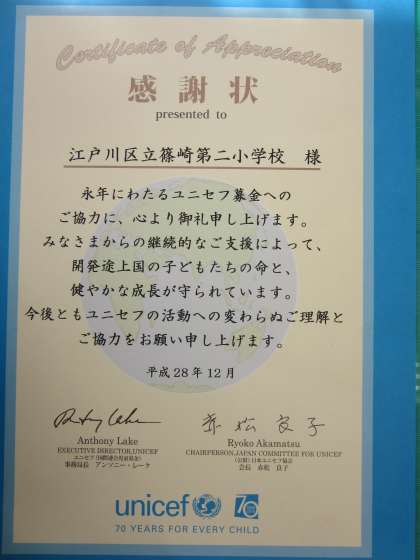 Certificate of Appreciation
感謝状
presented to
江戸川区立篠崎第二小学校 様
永年にわたるユニセフ募金への
ご協力に、心より御礼申し上げます。
みなさまからの継続的なご支援によって、
開発途上国の子どもたちの命と、
健やかな成長が守られています。
今後ともユニセフの活動への変わらぬご理解と
ご協力をお願い申し上げます。
平成28年12月
Anthony Lake
EXECUTIVE DIRECTOR,UNICEF
ユニセフ(国際連合児童基金)
事務局長 アンソニー・レーク
赤松良子
Ryoko Akamatsu
CHAIRPERSON,JAPAN COMMITTEE FOR UNICEF
(公財)日本ユニセフ協会
会長 赤松 良子
unicef 70
70 YEARS FOR EVERY CHILD